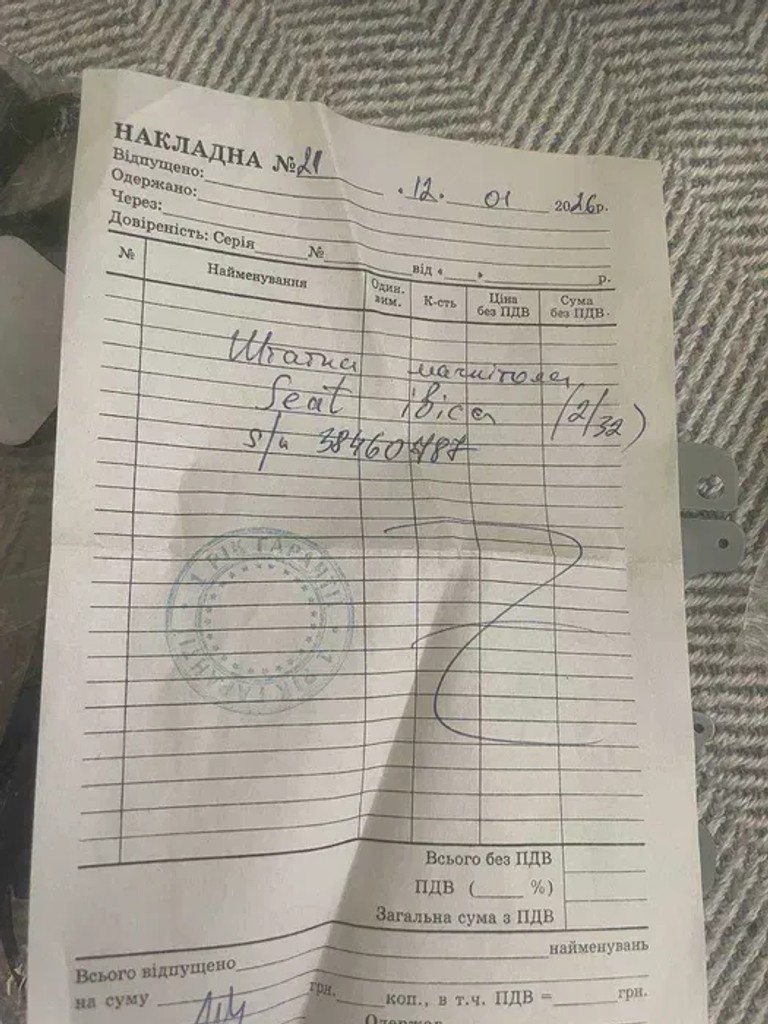 НАКЛАДНА №21
12. 01 2026р.
Відпущено:
Одержано:
Через:
Довіреність: Серія № від « » р.
№ Найменування Один. вим. К-сть Ціна без ПДВ Сума без ПДВ
Штатна магнітола
Seat івіса (2/32)
s/n 38460787
1 РІК ГАРАНТІЇ 1 РІК ГАРАНТІЇ
Всього без ПДВ
ПДВ ( %)
Загальна сума з ПДВ
Всього відпущено найменувань
на суму грн. коп., в т.ч. ПДВ = грн.